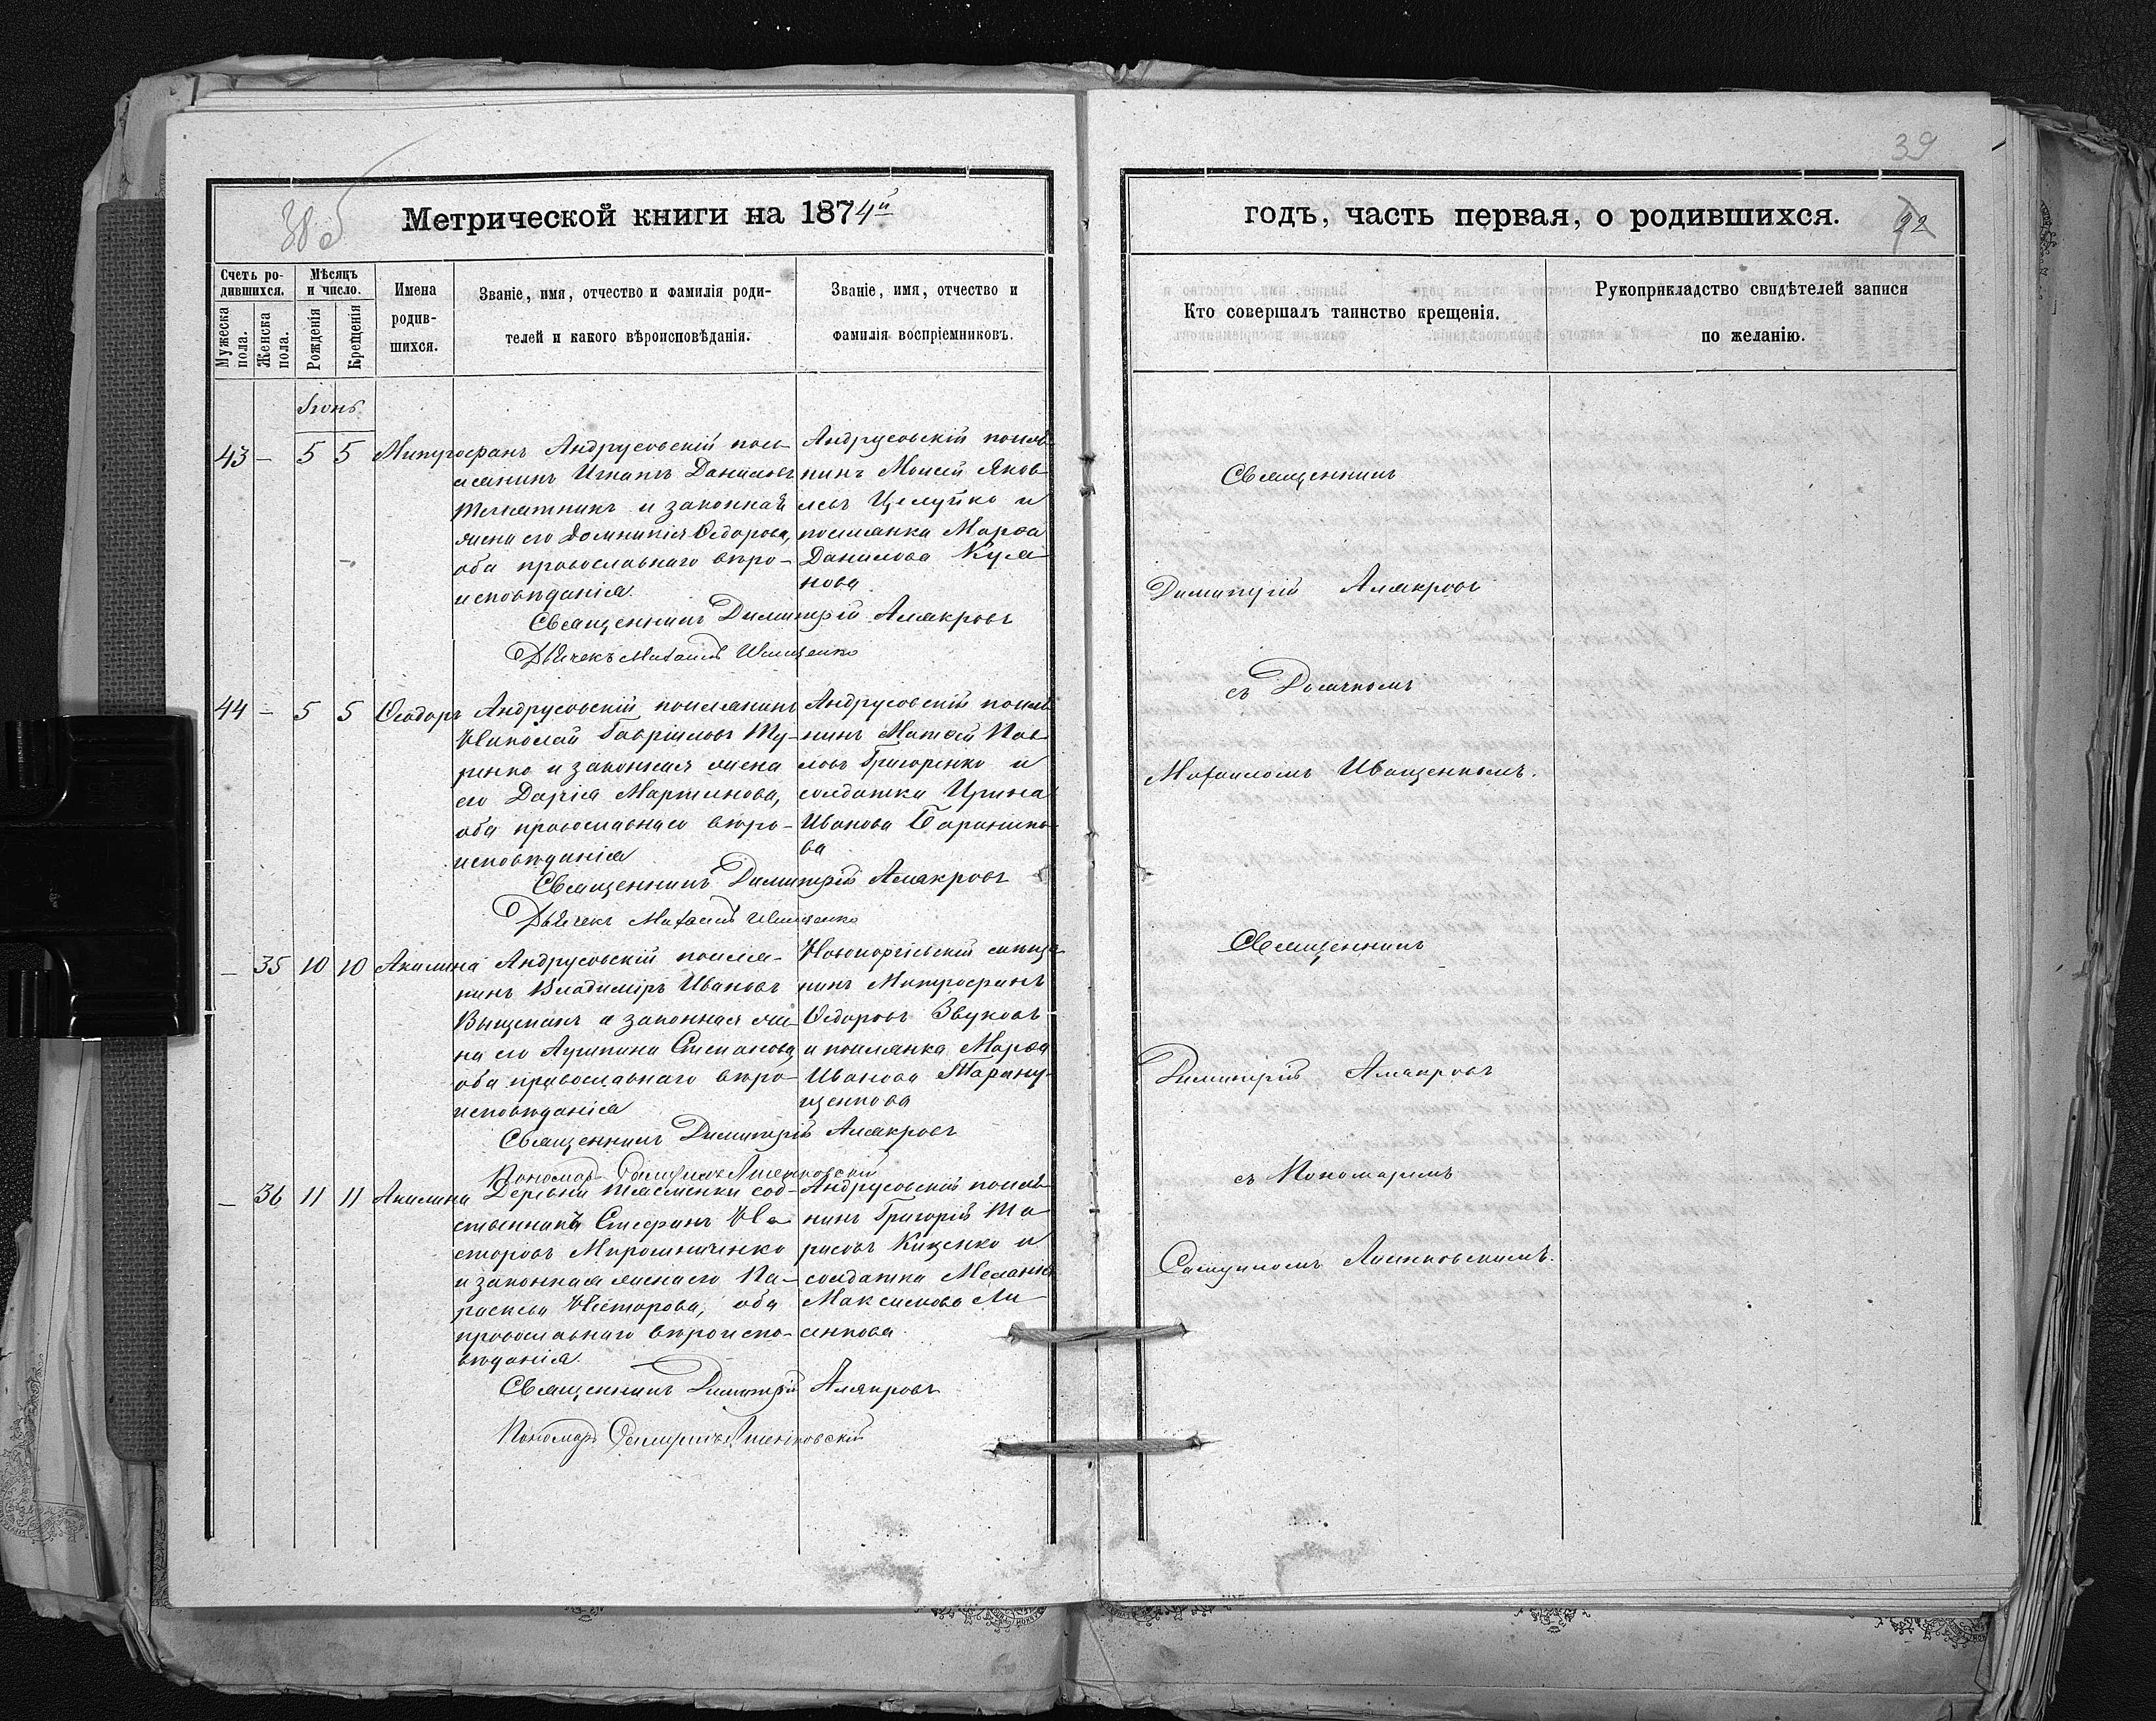 39
38 об
Метрической книги на 1874й
годъ, часть первая, о родившихся.
22
Счетъ ро-
дившихся.
Мужеска
пола.
Женска
пола.
Мѣсяцъ
и число.
Рожденія
Крещенія
Имена
родив-
шихся.
Званіе, имя, отчество и фамилія роди-
телей и какого вѣроисповѣданія.
Званіе, имя, отчество и
фамилія воспріемниковъ.
Кто совершалъ таинство крещенія.
Рукоприкладство свидѣтелей записи
по желанію.
Іюнь
43 — 5 5 Митрофанъ
Андрусовскій посе-
лянинъ Игнатъ Даниловъ
и законная
жена его Домникія Ѳедорова,
оба православнаго вѣро-
исповѣданія.
Андрусовскій поселя-
нинъ Моисей Яков-
левъ Целуйко и
поселянка Марѳа
Данилова
нова
Священникъ Димитрій Алякровъ
Дьячекъ Михаилъ Иващенко
44 — 5 5 Ѳеодоръ
Андрусовскій поселянинъ
Николай Гавріиловъ Ту-
ренко и законная жена
его Дарія Мартинова,
оба православнаго вѣро-
исповѣданія
Андрусовскій поселя-
нинъ Матѳей Пав-
ловъ Григоренко и
солдатка Ирина
Иванова Баранико-
ва
Священникъ Димитрій Алякровъ
Дьячекъ Михаилъ Иващенко
— 35 10 10 Акилина
Андрусовскій поселя-
нинъ Владиміръ Ивановъ
и законная же-
на его Агрипина Степанова,
оба православнаго вѣро-
исповѣданія
Новогеоргіевскій мѣща-
нинъ Митрофанъ
Ѳедоровъ Звуковъ
и поселянка Марѳа
Иванова Тарану-
щенкова
Священникъ Димитрій Алякровъ
Пономарь
— 36 11 11 Акилина
Деревни Тясминки соб-
ственникъ Стефанъ Не-
сторовъ Мирошниченко
и законная жена его Па-
раскева Несторова, оба
православнаго вѣроиспо-
вѣданія.
Андрусовскій поселя-
нинъ Григорій Та-
расовъ Киценко и
солдатка Меланія
Максимова Ли-
сенкова.
Священникъ Димитрій Алякровъ
Пономарь
Священникъ
Димитрій Алякровъ
съ Дьячкомъ
Михаиломъ Иващенкомъ.
Священникъ
Димитрій Алякровъ
съ Пономаремъ